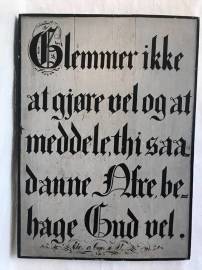 Glemmer ikke
at gjøre vel og at
meddele thi saa
danne Ofre be-
hage Gud vel.